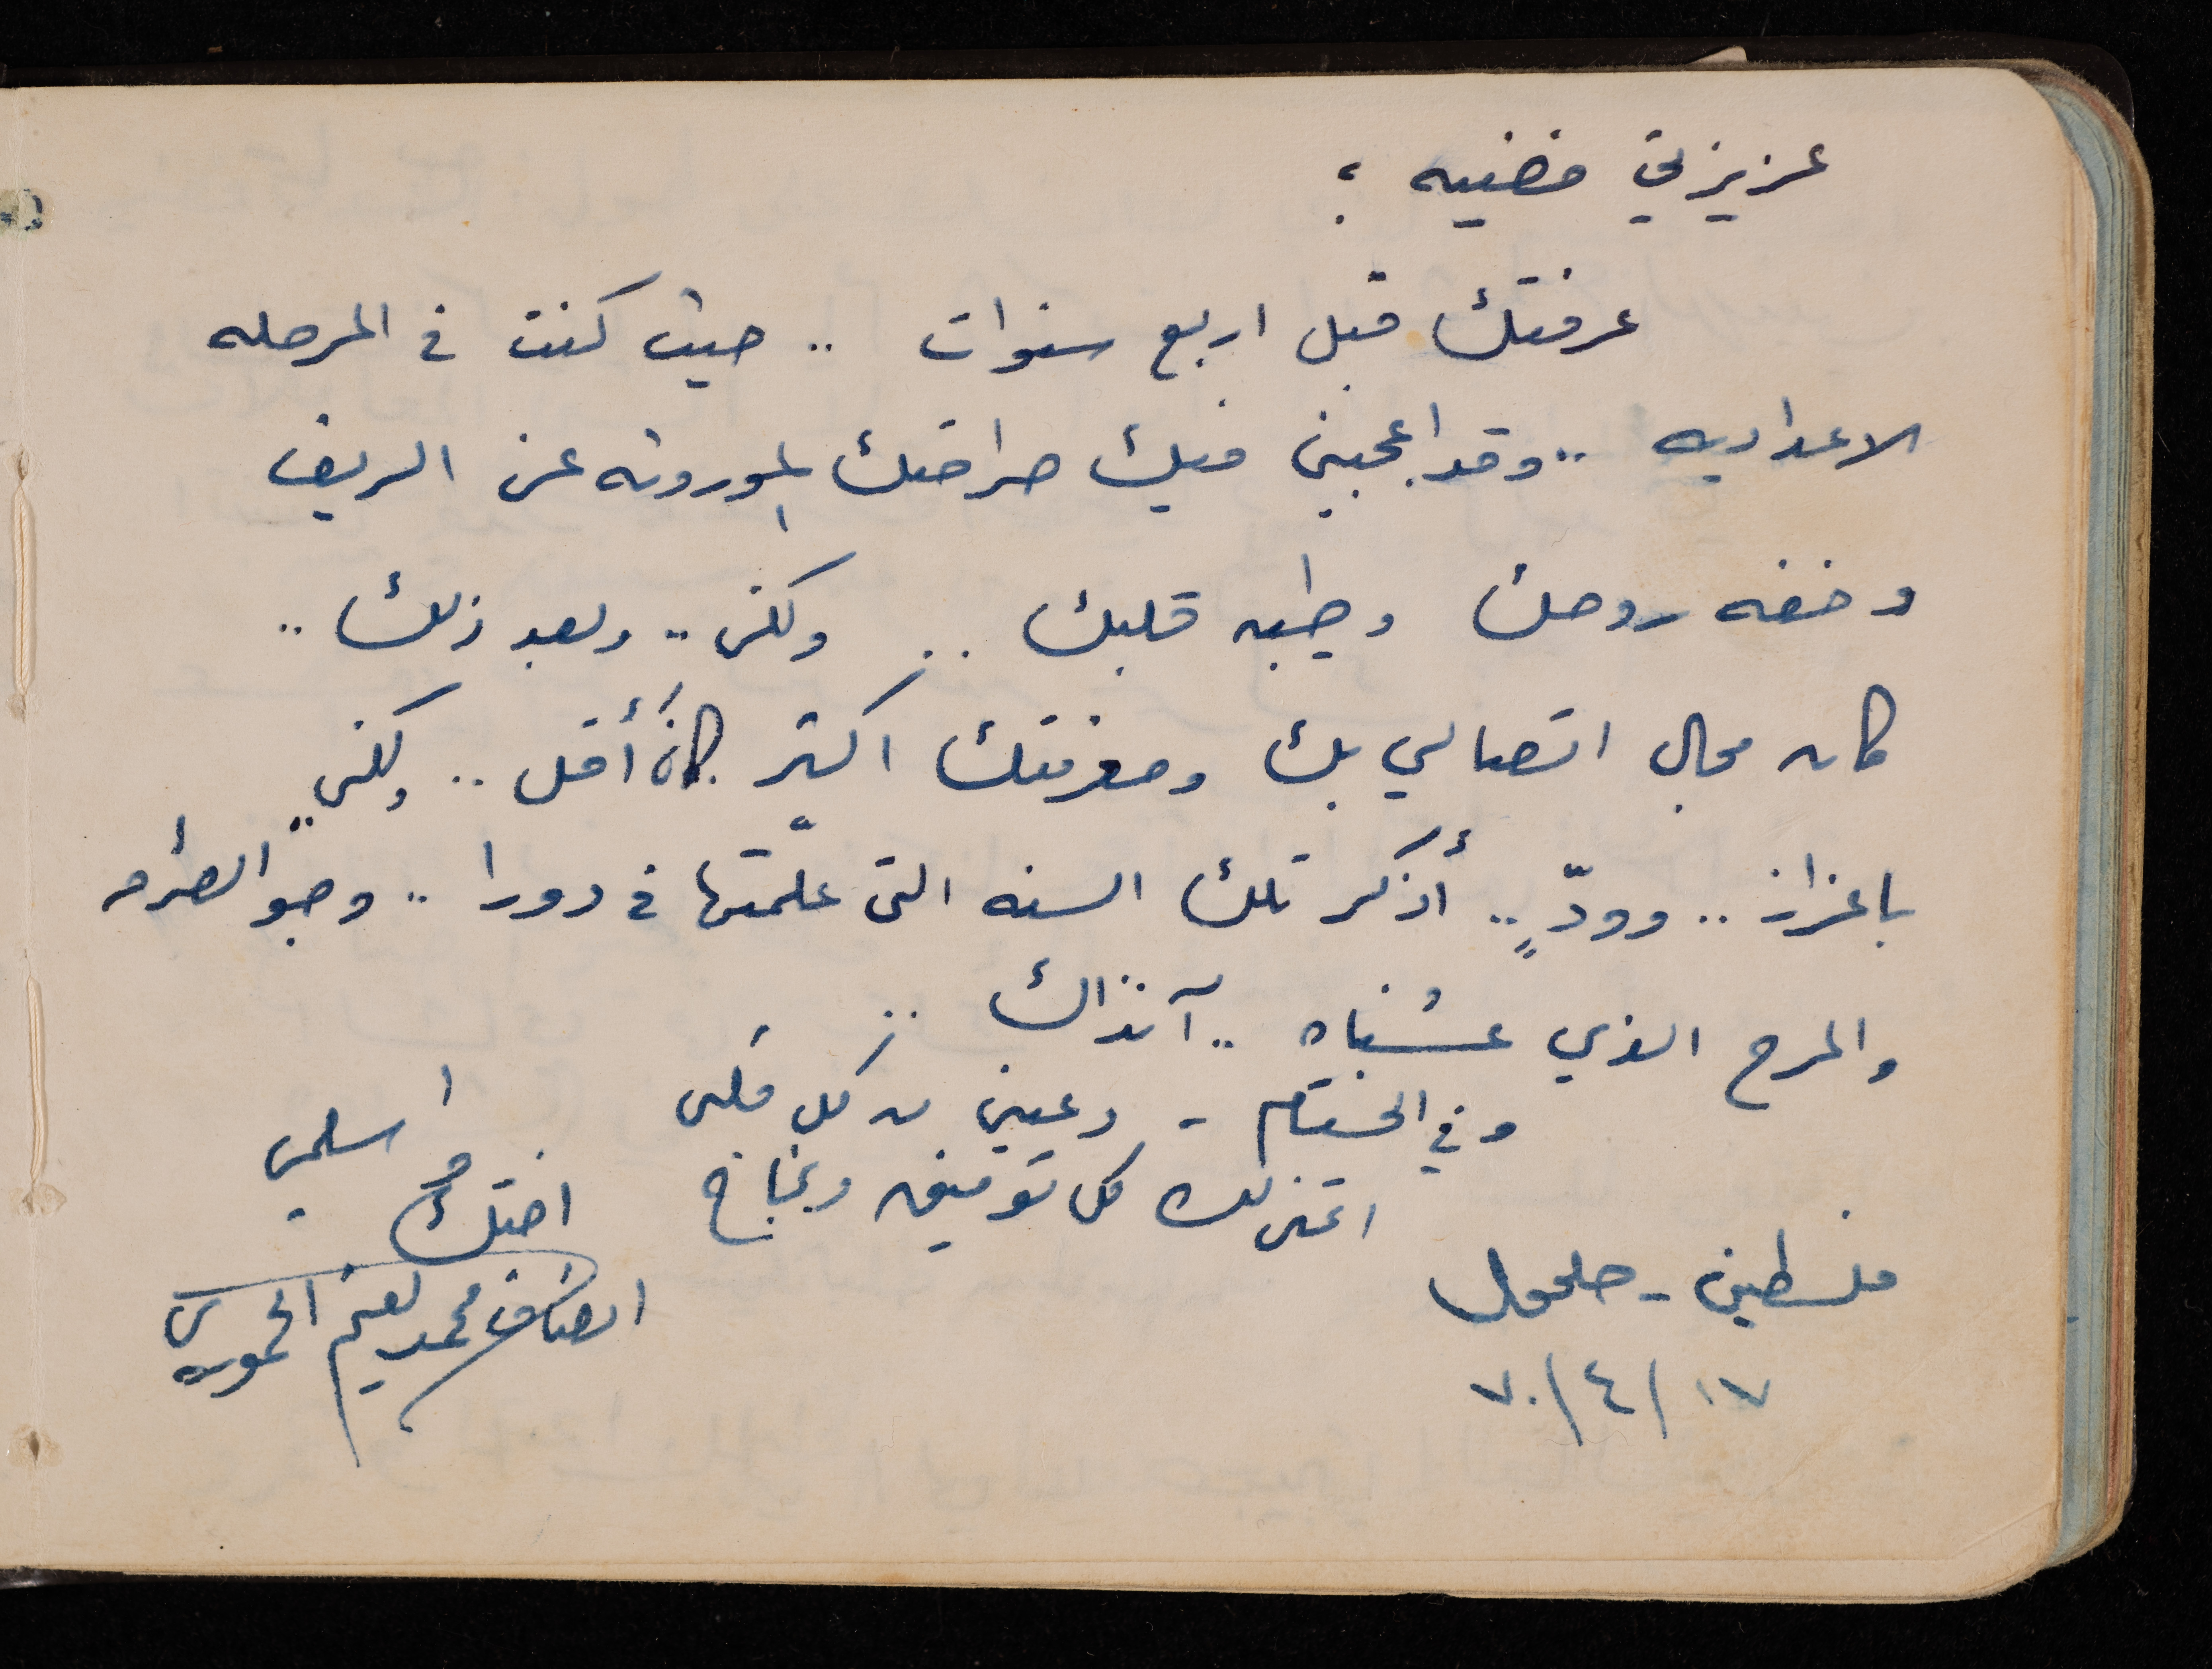 عزيزتي فضيه ؛
عرفتك قبل اربع سنوات .. حيث كنت في المرحله
الاعداديه .. وقد اعجبني فيك صراحتك الموروثه عن الريف
وخفه روحك وطيبه قلبك .. ولكن .. وبعد ذلك ..
كان مجال اتصالي بك ومعرفتك اكثر كان أقل .. ولكني ..
باعزاز .. وودٍّ .. أذكر تلك السنه التي علّمتها في دورا .. وجو
والمرح الذي عشناه .. آنذاك ..
وفي الختام - دعيني من كل قلبي
اتمنى لك كل توفيق ونجاح
اسلمي
اختك
محمد نعيم
فلسطين - حلحول
١٧ / ٤ / ٧٠